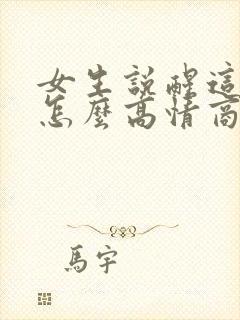 女生說醒這
怎麼高情商
馬宇